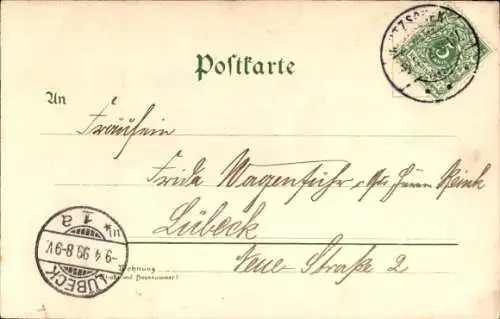 Postkarte
An
Fräulein
Frida Wagenführ
Lübeck
Neue Straße 2
Wohnung
(Straße und Hausnummer)
LÜBECK
-9.4.99.8-9V.
1 a
5